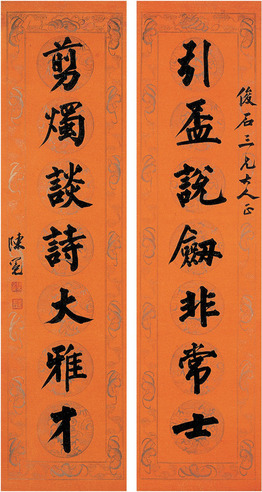 俊石三兄大人正
引盃說劔非常士
剪燭談詩大雅才
陳冕